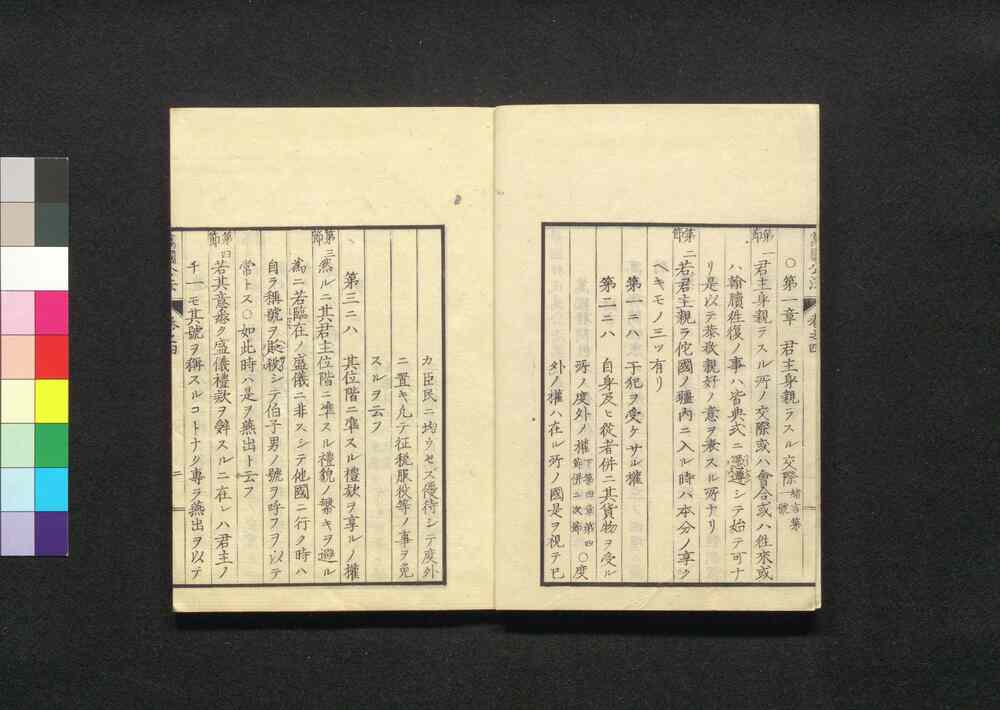 萬國公法 卷之四
○第一章 君主身親ラスル交際 緒言第一號
第一節 君主身親ラスル所ノ交際或ハ會合或ハ往來或
ハ翰牘往復ノ事ハ皆典式ニ遵シテ始テ可ナ
リ是以テ恭敬親好ノ意ヲ表スル所ナリ
第二節 若君主親ラ佗國ノ疆内ニ入ル時ハ本分ノ享ク
ヘキモノ三ツ有リ
第一ニハ 干犯ヲ受ケサル權
第二ニハ 自身及ヒ從者併ニ其貨物ヲ受ル
所ノ度外ノ權 下ノ第四章第四節併ニ次節 ○度
外ノ權ハ在ル所ノ國是ヲ視テ已
カ臣民ニ均ウセズ優待シテ度外
ニ置キ凡テ征税服役等ノ事ヲ免
スルヲ云フ
第三ニハ 其位階ニ準スル禮欵ヲ享ルノ權
第三節 然ルニ其君主位階ニ準スル禮貌ノ繁キヲ避ル
為ニ若臨在ノ盛儀ニ非スシテ他國ニ行ク時ハ
自ラ稱號ヲ シテ伯子男ノ號ヲ呼フヲ以テ
常トス○如此時ハ是ヲ燕出ト云フ
第四節 若其意 ク盛儀禮欵ヲ辭スルニ在レハ君主ノ
千一モ其號ヲ稱スルコトナク專ラ燕出ヲ以テ
萬國公法 卷之四 二